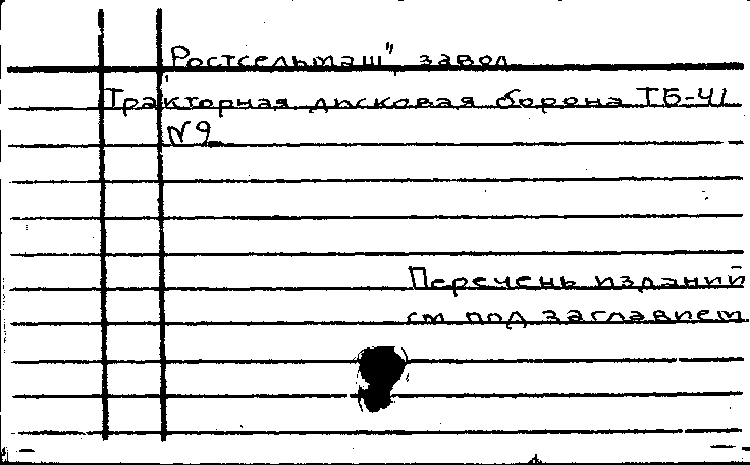 Ростсельмаш" завод
Тракторная дисковая борона ТБ-41
N 9
Перечень изданий
см под заглавием